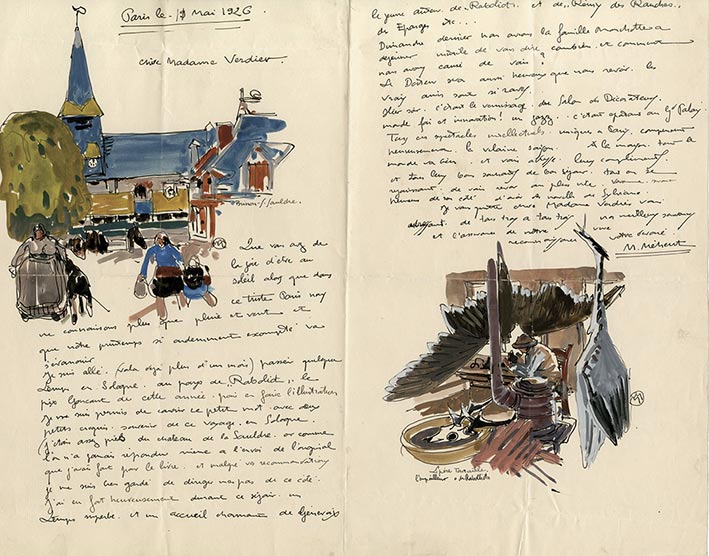 Paris le 17 Mai 1926.
chère Madame Verdier.
Brinon s/ Sauldre.
Que vous avez de
la joie d'être au
soleil alors que dans
ce triste Paris nous
ne connaissons plus que pluie et vent et
que notre printemps si ardemment escompté va
s'évanouir
Je suis allé (voilà déjà plus d'un mois) passer quelque
temps en Sologne. au pays de Raboliot,, le
prix Goncourt de cette année. pour en faire l'illustration
Je me suis permis de couvrir ce petit mot. avec deux
petits croquis. souvenir de ce voyage. en Sologne.
j'étais assez près du chateau de la Sauldre. or comme
l'on n'a jamais répondu même à l'envoi de l'original
que j'avais fait pour le livre. et malgré vos recommandations
je me suis bien gardé de diriger mes pas de ce côté.
J'ai eu fort heureusement durant ce séjour. un
temps superbe. et un accueil charmant de Genevoix
le jeune auteur de ,,Raboliot,, et de ,,Rémy des Rauches,,
des Eparges etc...
Dimanche dernier nous avons la famille
déjeuner inutile de vous dire combien et comment
nous avons causé de vous?
A Doiteau sera aussi heureux que nous revoir. les
vrais amis sont si rares.
Hier soir. c'était le vernissage. du Salon des Décorateurs.
monde fou et innovation! un jazz.. c'était opérant au Gd Palais.
Tous ces spectacles intellectuels. unique à Paris. compensent
heureusement la vilaine saison. A la maison tout le
monde va bien. et vous adresse leurs compliments
et tous leurs bons souhaits de bon séjour. tous en se
réjouissant. de vous revoir au plus vite
heureux de ce côté. d'avoir de nouvelle de Sylviane.
Je vous quitte chère Madame Verdier. vous
adressant. de tous trois à tous trois nos meilleurs souvenirs
et l'assurance de notre vive
reconnaissance votre dévoué.
M. Méheut
le père
l'empailleur de Raboliot